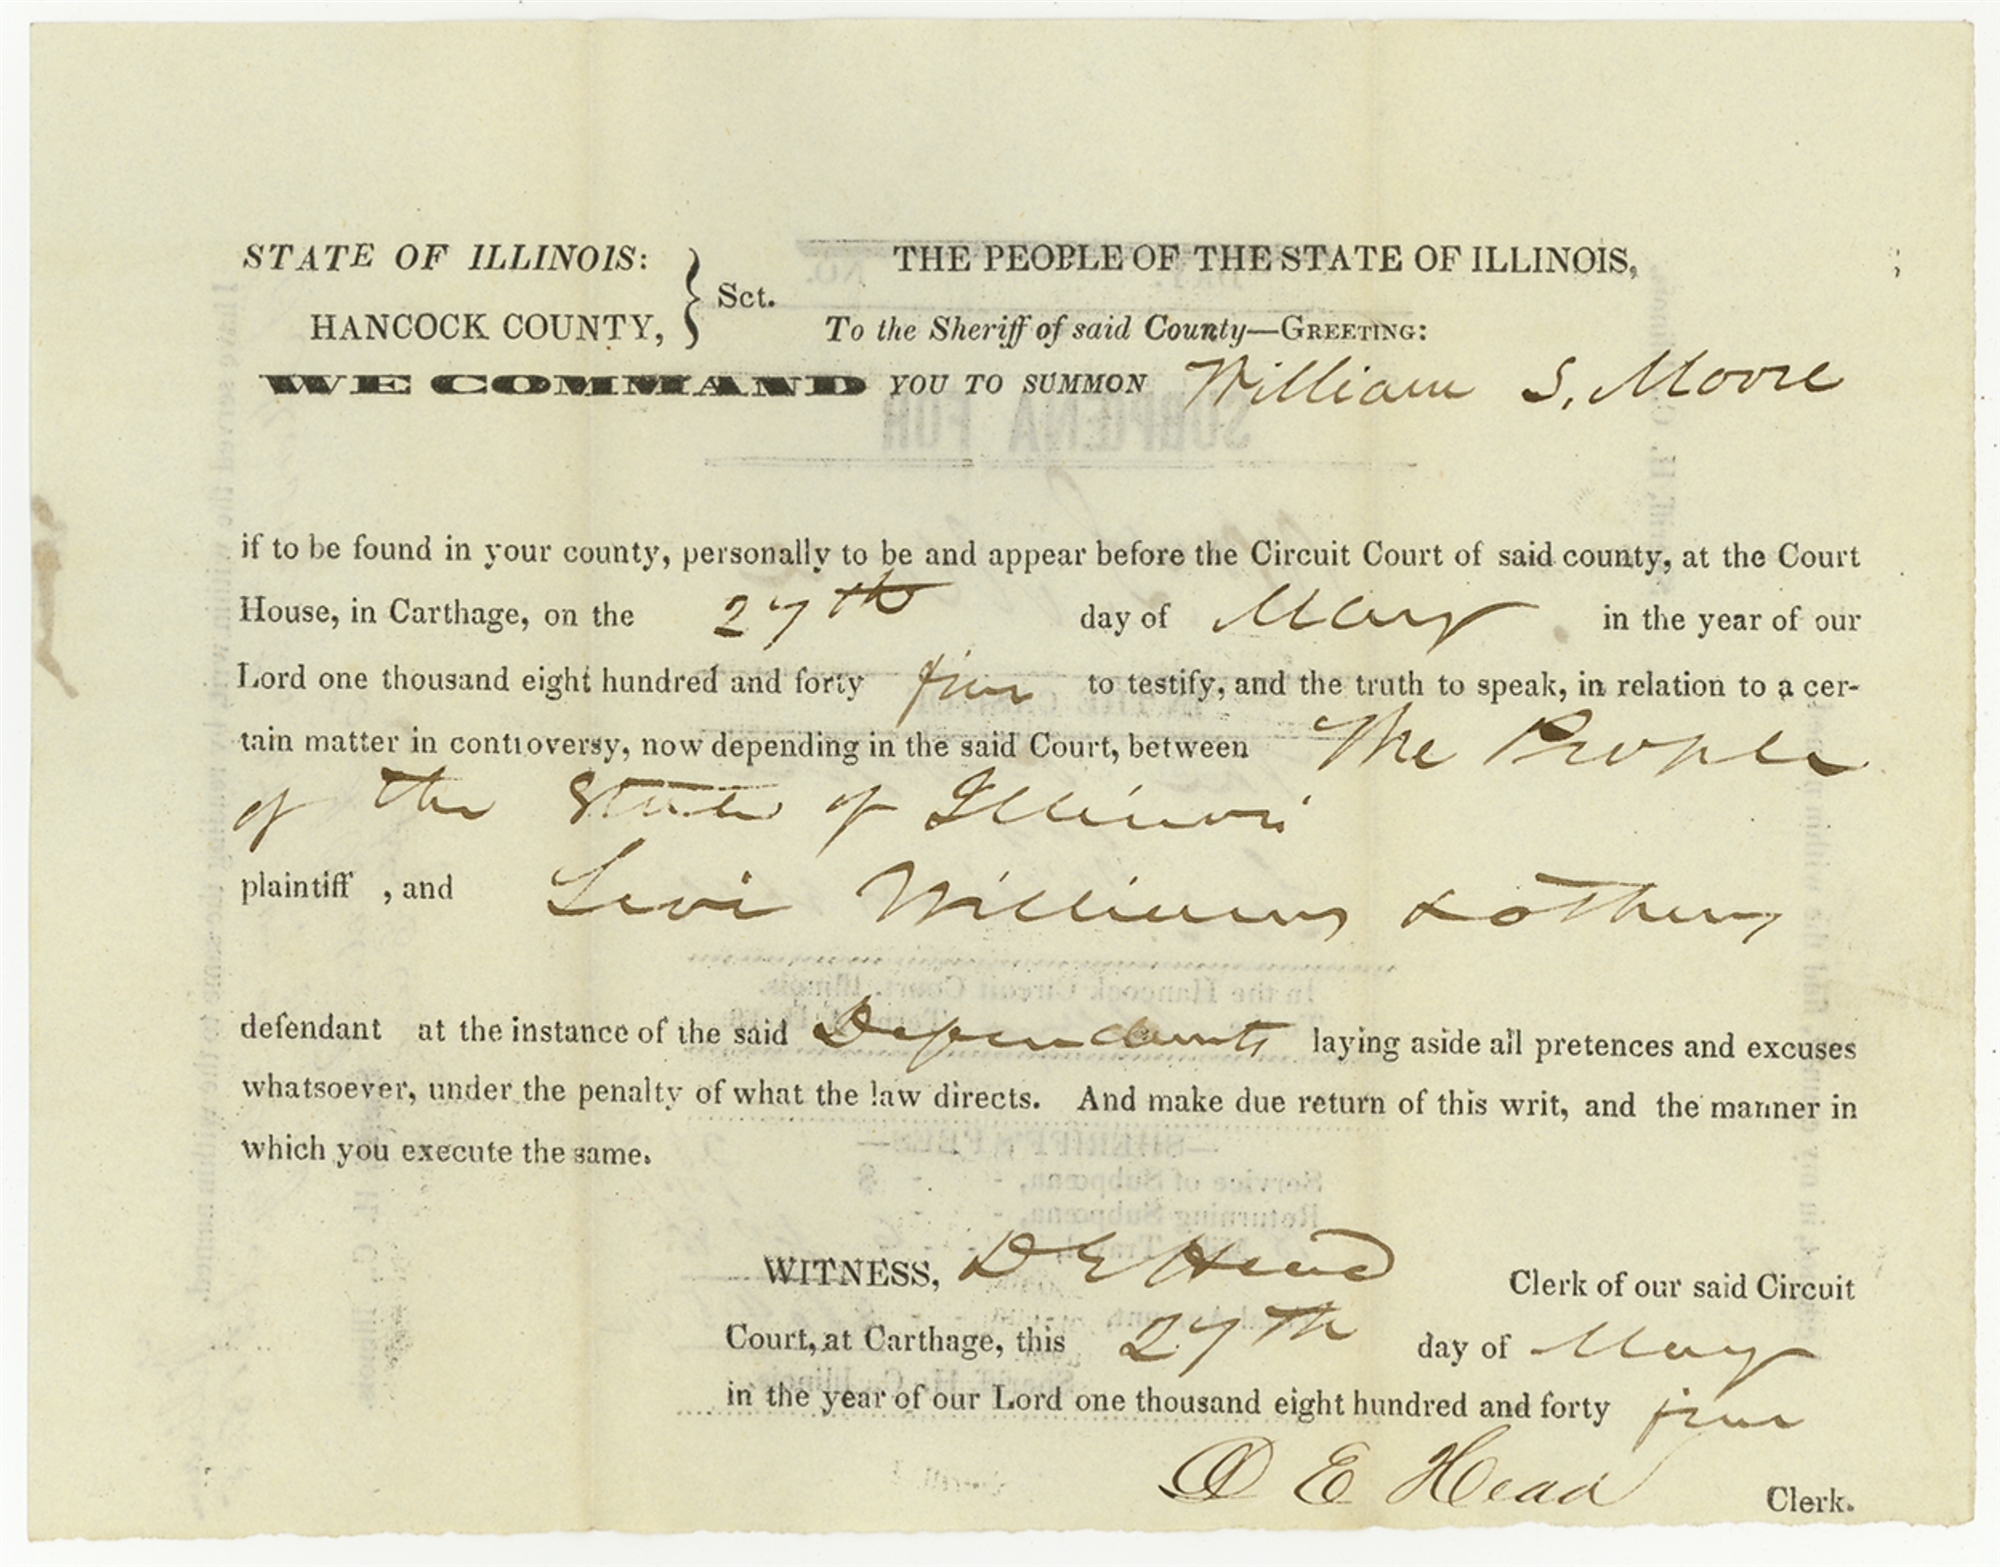 STATE OF ILLINOIS: } Sct. THE PEOPLE OF THE STATE OF ILLINOIS,
HANCOCK COUNTY, To the Sheriff of said County—GREETING:
WE COMMAND YOU TO SUMMON William S. Moore
SUBPŒNA FOR
if to be found in your county, personally to be and appear before the Circuit Court of said county, at the Court
House, in Carthage, on the 27th day of May in the year of our
Lord one thousand eight hundred and forty five to testify, and the truth to speak, in relation to a cer-
tain matter in controversy, now depending in the said Court, between The People
of the State of Illinois
plaintiff , and Levi Williams & others
In the Hancock Circuit Court, Illinois.
defendant at the instance of the said Dependants laying aside all pretences and excuses
whatsoever, under the penalty of what the law directs. And make due return of this writ, and the manner in
which you execute the same.
—SHERIFF'S FEES—
Service of Subpœna, - - $
Returning Subpœna, - -
WITNESS, D E Head Clerk of our said Circuit
Court, at Carthage, this 27th day of May
in the year of our Lord one thousand eight hundred and forty five
D E Head Clerk.